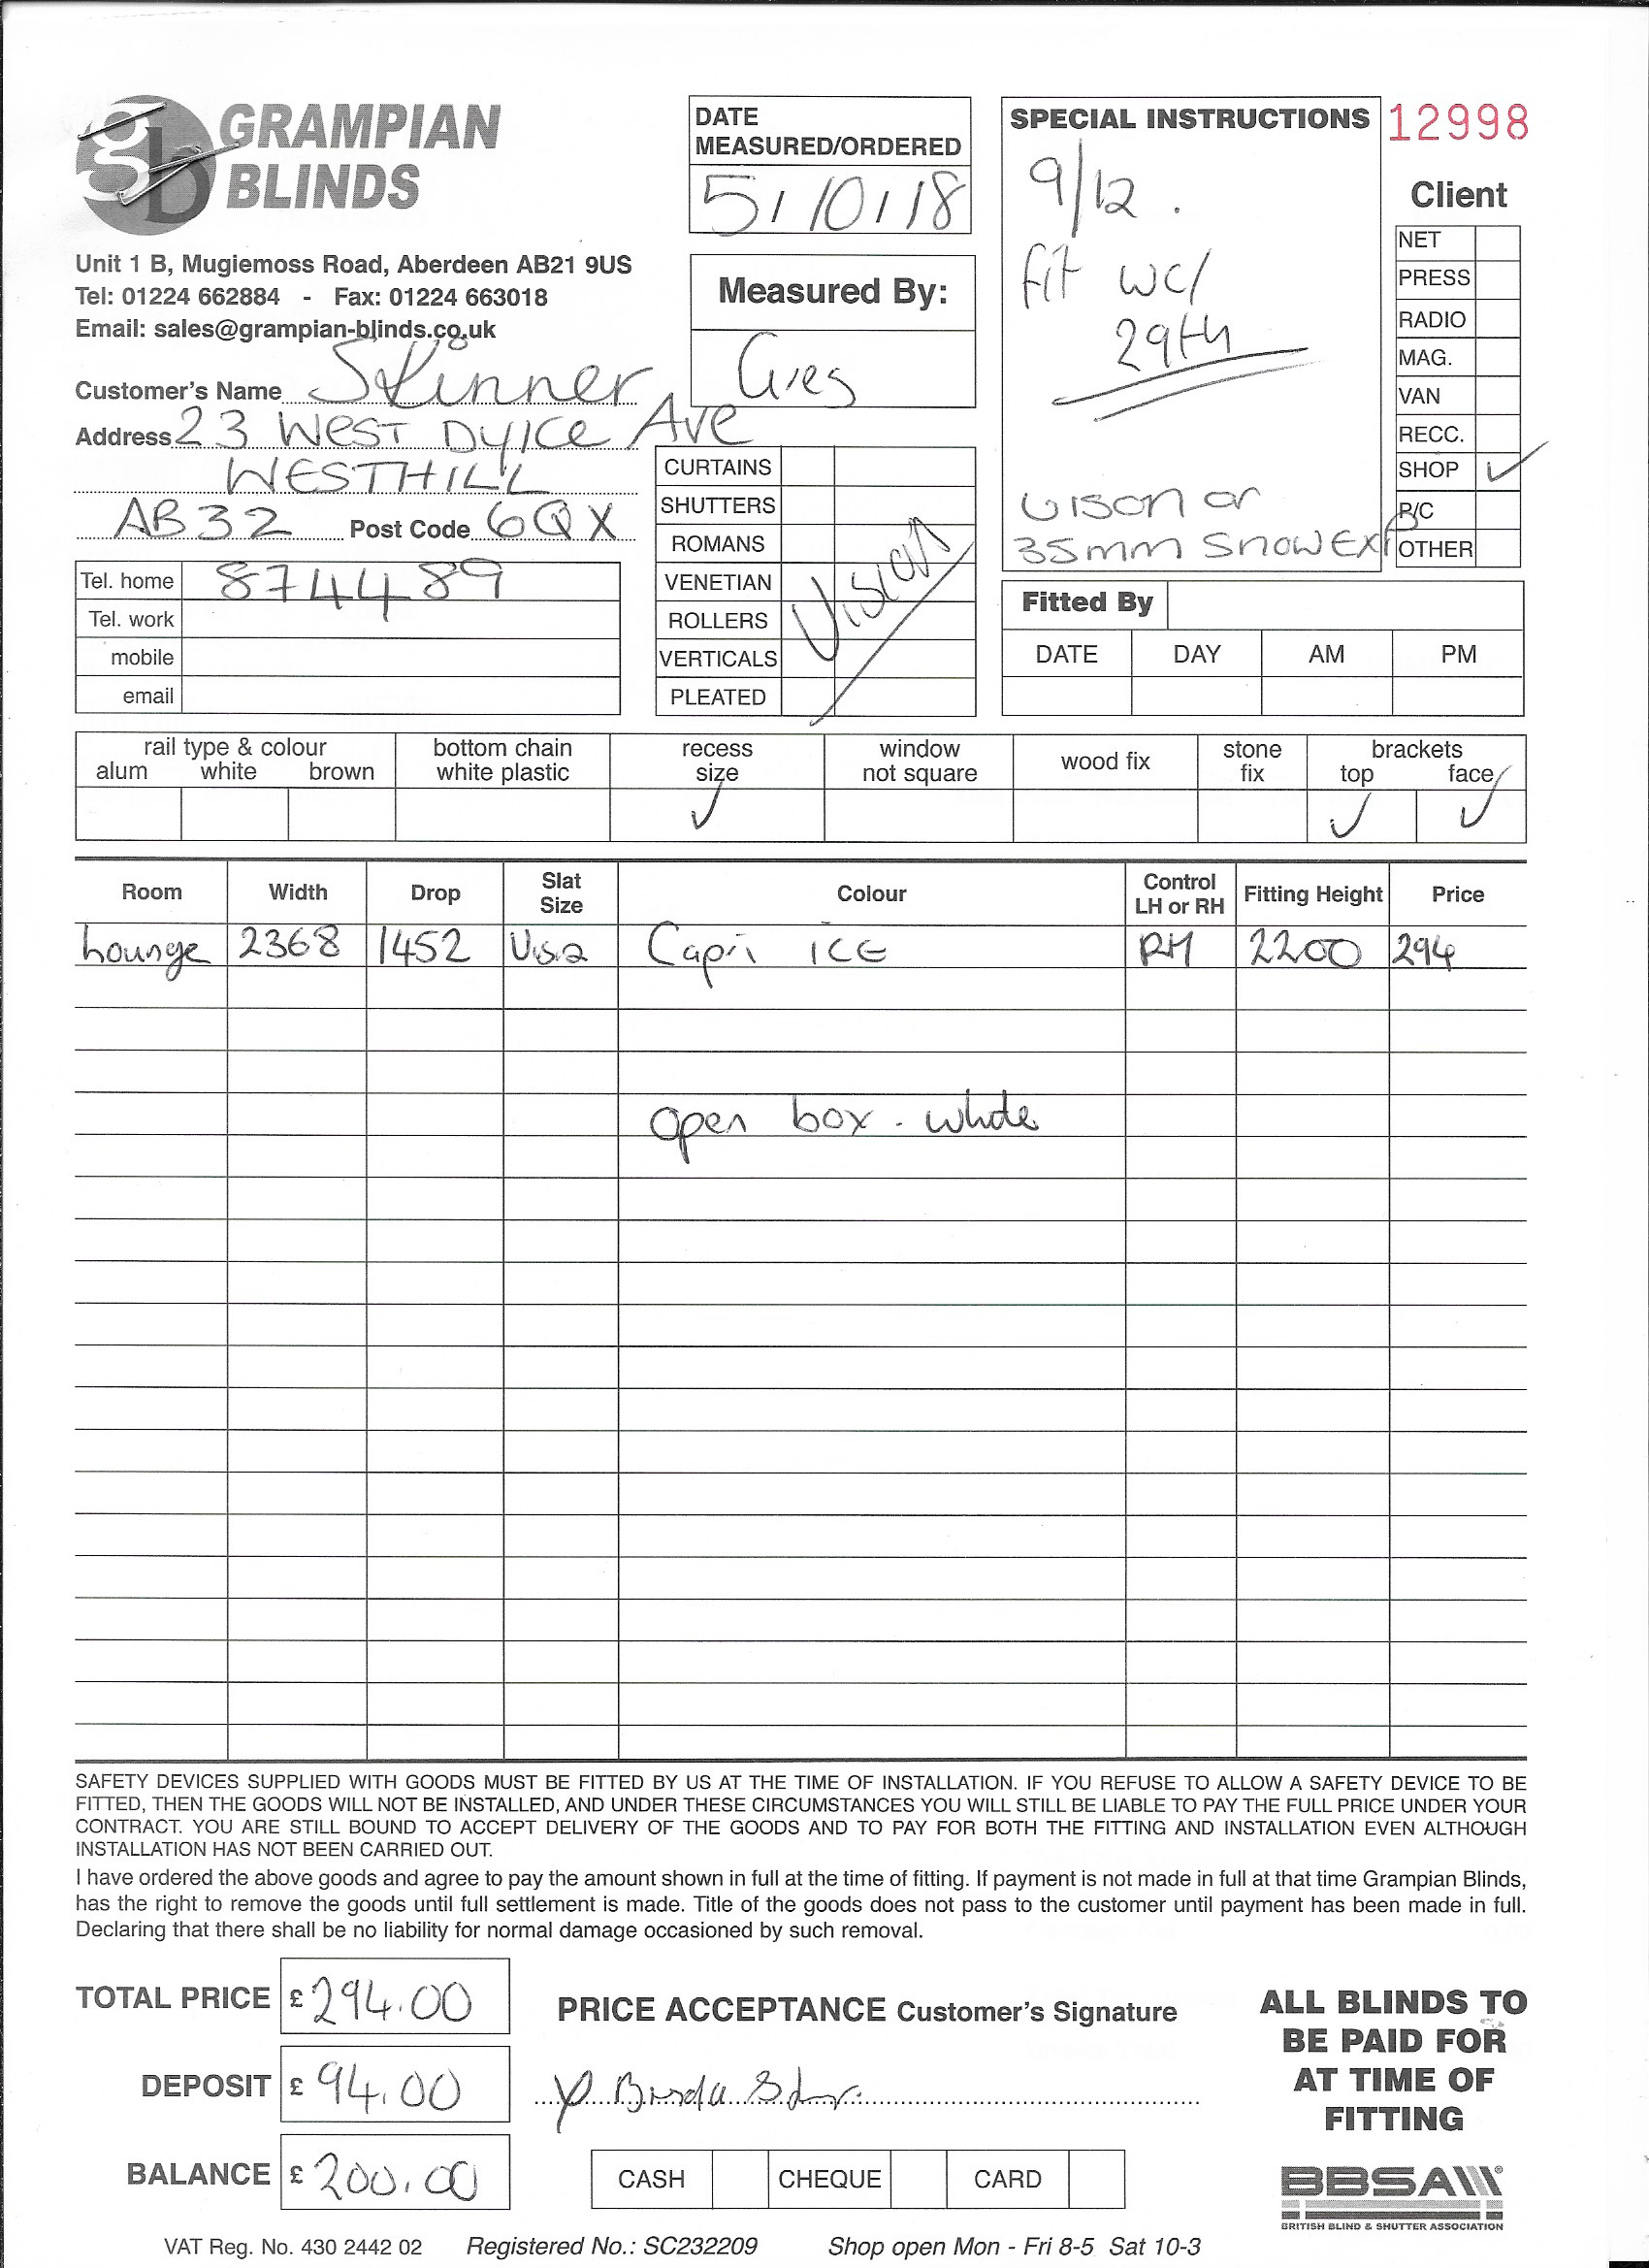 GRAMPIAN
BLINDS
Unit 1 B, Mugiemoss Road, Aberdeen AB21 9US
Tel: 01224 662884 - Fax: 01224 663018
Email: sales@grampian-blinds.co.uk
Customer's Name Skinner
Address 23 WEST DYICE Ave
WESTHILL
AB32 Post Code 6QX
Tel. home 874489
Tel. work
mobile
email
DATE
MEASURED/ORDERED
5/10/18
Measured By:
Greg
CURTAINS
SHUTTERS
ROMANS
VENETIAN
ROLLERS
VERTICALS
PLEATED
Vision
SPECIAL INSTRUCTIONS
9/12.
fit wc/
29th
Vison or
35mm Snow Exp
12998
Client
NET
PRESS
RADIO
MAG.
VAN
RECC.
SHOP ✓
P/C
OTHER
Fitted By
DATE DAY AM PM
rail type & colour
alum white brown
bottom chain
white plastic
recess
size
✓
window
not square
wood fix
stone
fix
brackets
top face
✓ ✓
Room Width Drop Slat Size Colour Control LH or RH Fitting Height Price
Lounge 2368 1452 Capri ICE RH 2200 294
open box - white
SAFETY DEVICES SUPPLIED WITH GOODS MUST BE FITTED BY US AT THE TIME OF INSTALLATION. IF YOU REFUSE TO ALLOW A SAFETY DEVICE TO BE
FITTED, THEN THE GOODS WILL NOT BE INSTALLED, AND UNDER THESE CIRCUMSTANCES YOU WILL STILL BE LIABLE TO PAY THE FULL PRICE UNDER YOUR
CONTRACT. YOU ARE STILL BOUND TO ACCEPT DELIVERY OF THE GOODS AND TO PAY FOR BOTH THE FITTING AND INSTALLATION EVEN ALTHOUGH
INSTALLATION HAS NOT BEEN CARRIED OUT.
I have ordered the above goods and agree to pay the amount shown in full at the time of fitting. If payment is not made in full at that time Grampian Blinds,
has the right to remove the goods until full settlement is made. Title of the goods does not pass to the customer until payment has been made in full.
Declaring that there shall be no liability for normal damage occasioned by such removal.
TOTAL PRICE £ 294.00
DEPOSIT £ 94.00
BALANCE £ 200.00
PRICE ACCEPTANCE Customer's Signature
CASH CHEQUE CARD
ALL BLINDS TO
BE PAID FOR
AT TIME OF
FITTING
BBSA
BRITISH BLIND & SHUTTER ASSOCIATION
VAT Reg. No. 430 2442 02 Registered No.: SC232209 Shop open Mon - Fri 8-5 Sat 10-3